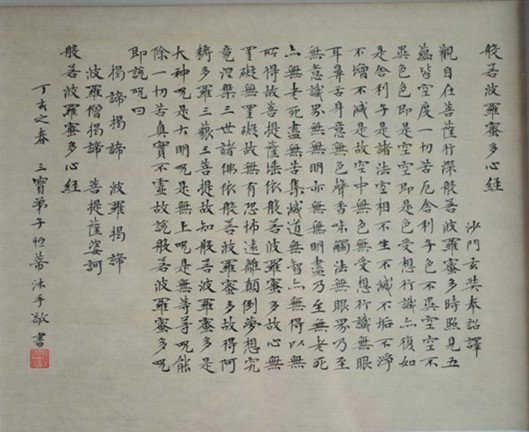 般若波羅蜜多心經
沙門玄奘奉詔譯
觀自在菩薩行深般若波羅蜜多時照見五
蘊皆空度一切苦厄舍利子色不異空空不
異色色即是空空即是色受想行識亦復如
是舍利子是諸法空相不生不滅不垢不淨
不增不減是故空中無色無受想行識無眼
耳鼻舌身意無色聲香味觸法無眼界乃至
無意識界無無明亦無無明盡乃至無老死
亦無老死盡無苦集滅道無智亦無得以無
所得故菩提薩埵依般若波羅蜜多故心無
罣礙無罣礙故無有恐怖遠離顛倒夢想究
竟涅槃三世諸佛依般若波羅蜜多故得阿
耨多羅三藐三菩提故知般若波羅蜜多是
大神呪是大明呪是無上呪是無等等呪能
除一切苦真實不虛故說般若波羅蜜多呪
即說呪曰
揭諦揭諦 波羅揭諦
波羅僧揭諦 菩提薩婆訶
般若波羅蜜多心經
丁亥之春 三寶弟子恒蒂沐手敬書